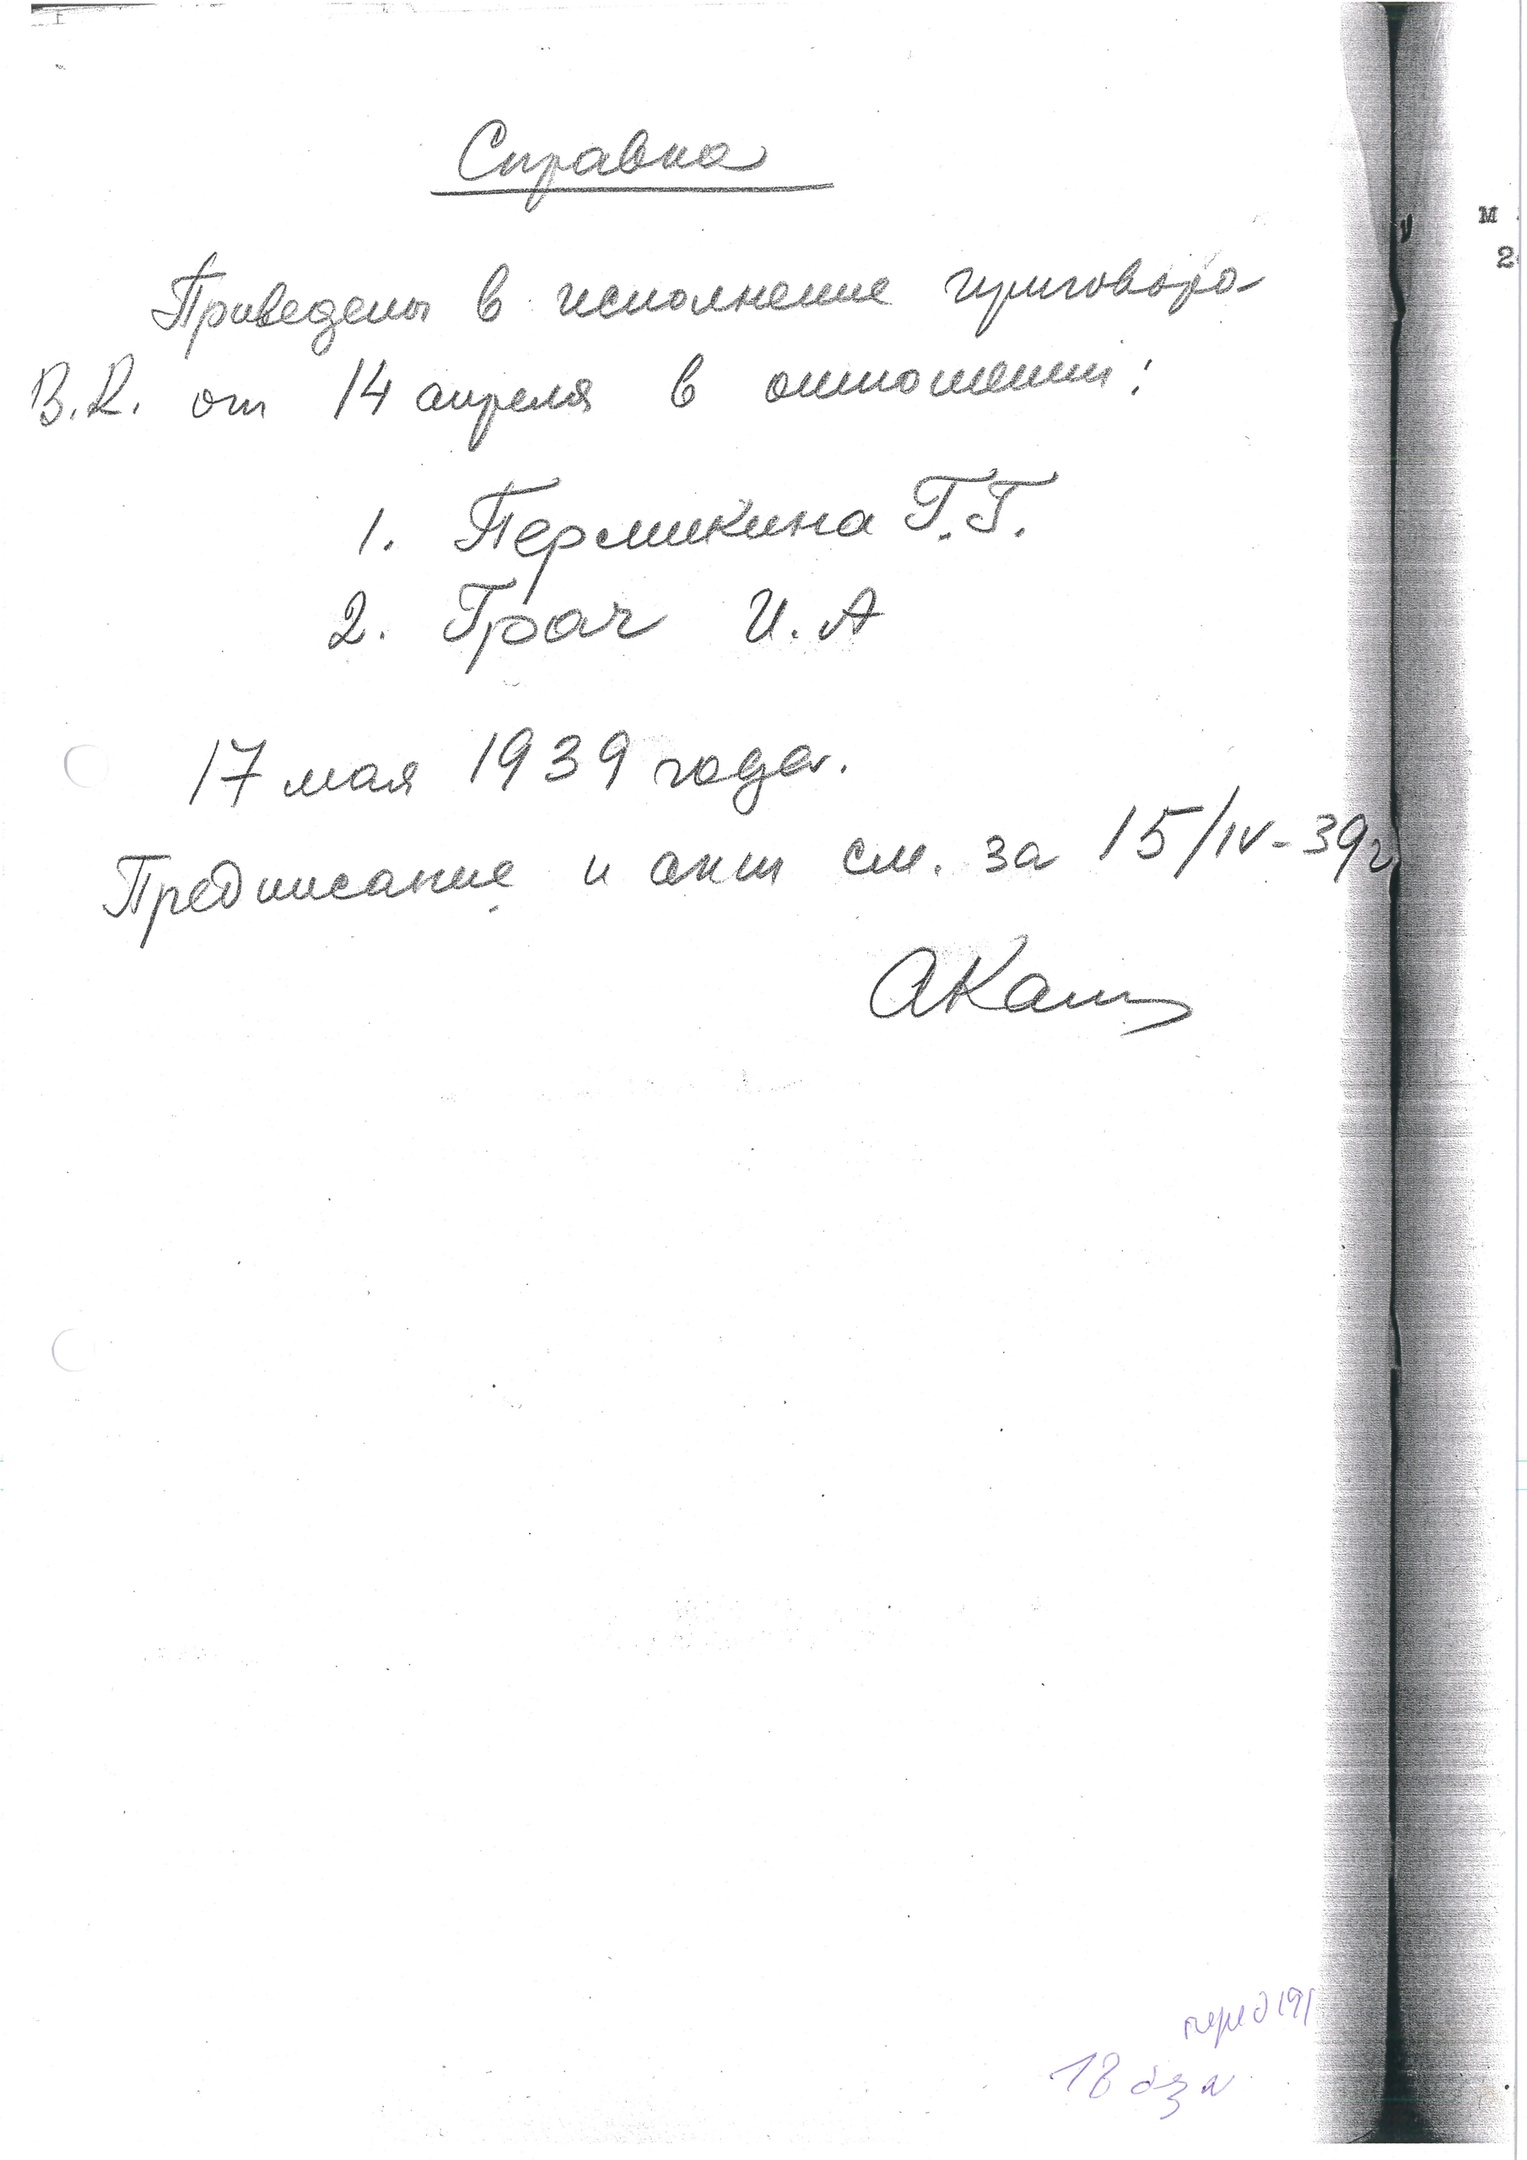 Справка
Приведены в исполнение приговора
В.К. от 14 апреля в отношении:
1. Пермикина Г.Г.
2. Грач И.А
17 мая 1939 года.
Предписание и акт см. за 15/IV-39г
АКаш
перед 191
18 б
м
2